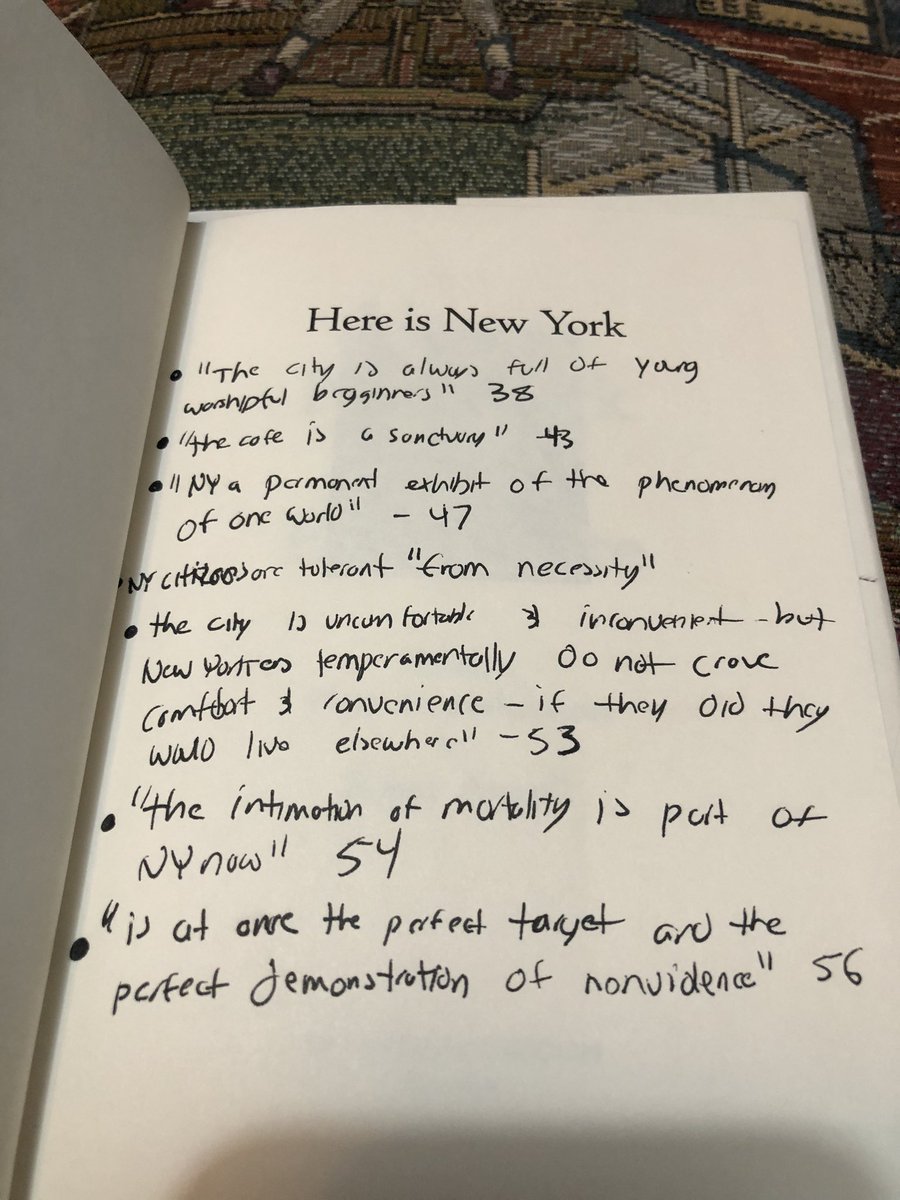 Here is New York
• "The city is always full of young
worshipful begginners" 38
• "the cafe is a sanctuary" 43
• "NY a permanent exhibit of the phenomenon
of one world" - 47
• NY citizens are tolerant "from necessity"
• the city is uncomfortable & inconvenient - but
New Yorkers temperamentally do not crave
comfort & convenience - if they did they
would live elsewhere" - 53
• "the intimation of mortality is part of
NY now" 54
• "is at once the perfect target and the
perfect demonstration of nonviolence" 56